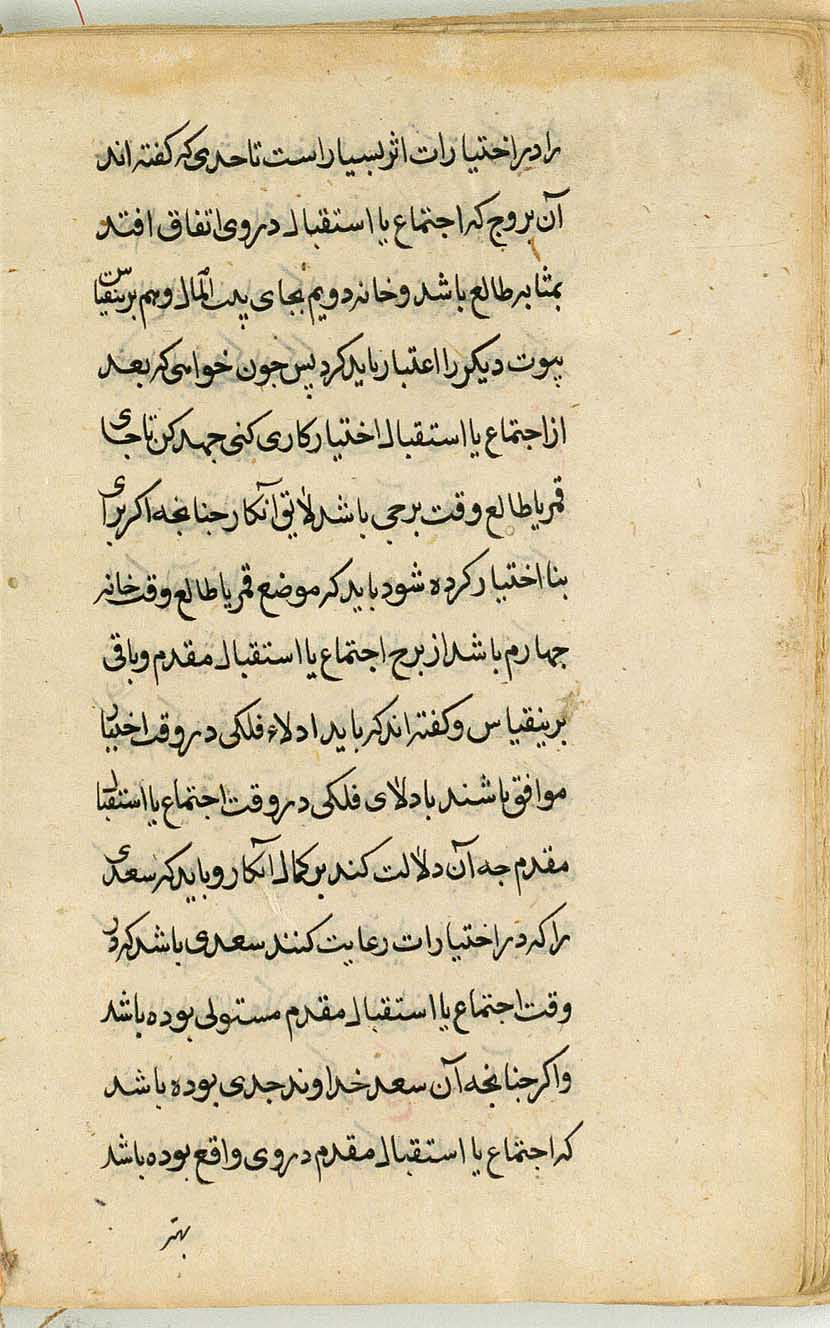 را در اختیارات اثر بسیار است تا حدی که کفته اند
آن بروج که اجتماع یا استقبال در وی اتفاق افتد
بمثابه طالع باشد و خانه دویم بجای بیت المال و بهم برینقیاس
بیوت دیکر را اعتبار باید کرد پس جون خواهی که بعد
از اجتماع یا استقبال اختیار کاری کنی جهد کن تا جای
قمر یا طالع وقت برجی باشد لایق آنکار جنانجه اکر برای
بنا اختیار کرده شود باید که موضع قمر یا طالع وقت خانه
جهارم باشد از برج اجتماع یا استقبال مقدم و باقی
برینقیاس و کفته اند که باید ادلاء فلکی در وقت اختیار
موافق باشند با دلای فلکی در وقت اجتماع یا استقبال
مقدم جه آن دلالت کند بر کمال آنکار و باید که سعدی
را که در اختیارات رعایت کنند سعدی باشد که در
وقت اجتماع یا استقبال مقدم مستولی بوده باشد
و اکر جنانجه آن سعد خداوند جدی بوده باشد
که اجتماع یا استقبال مقدم در وی واقع بوده باشد
بهتر